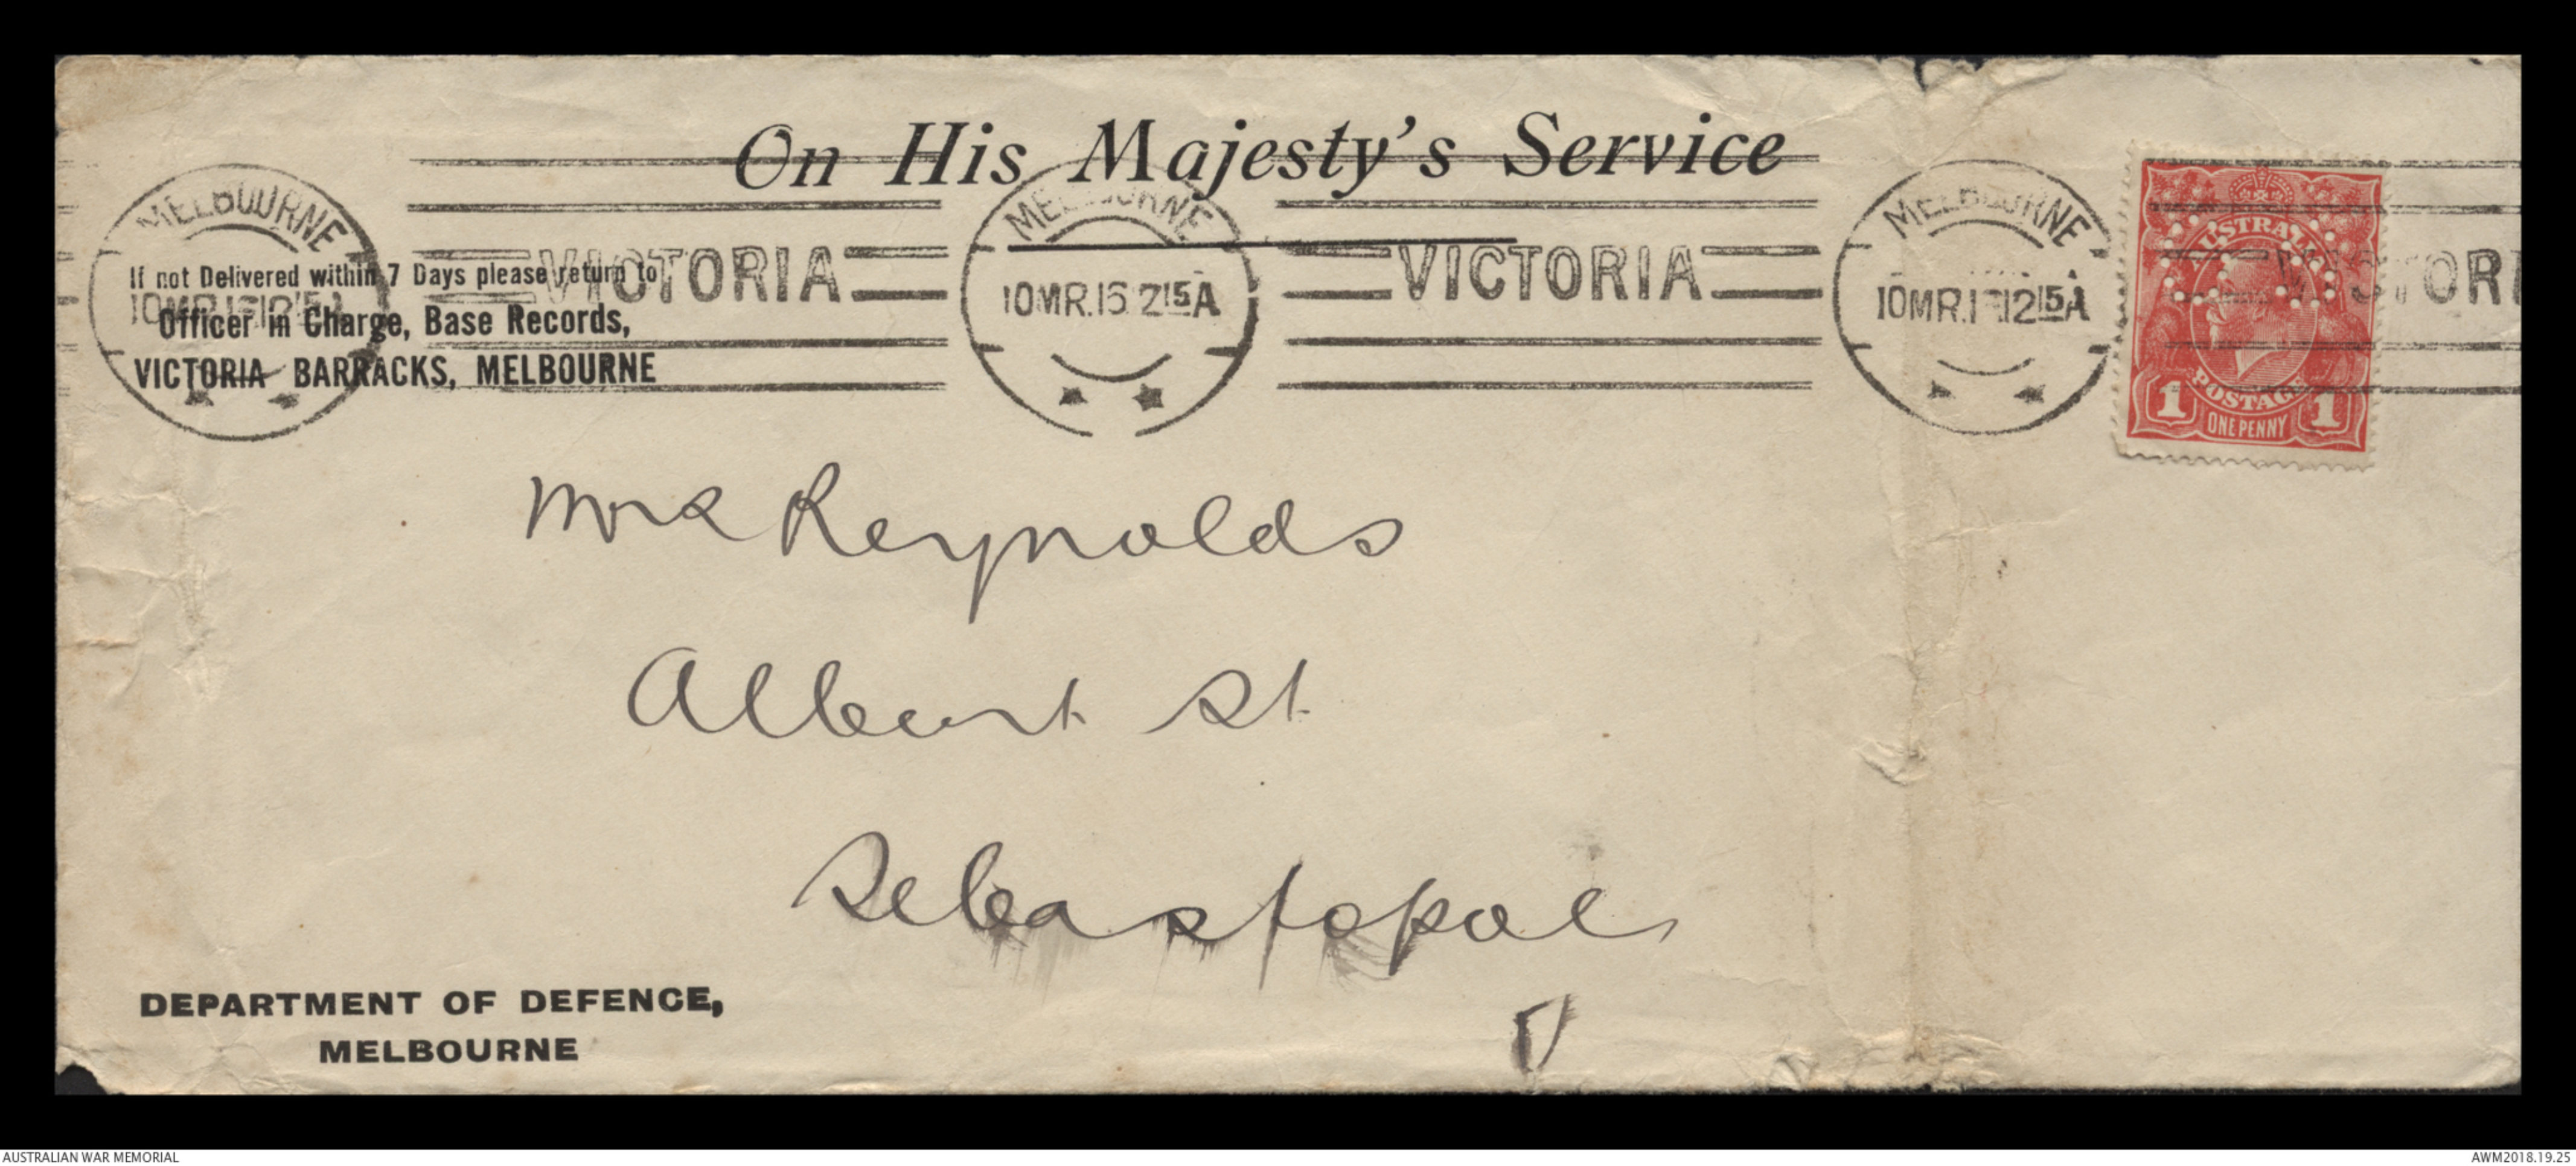 On His Majesty's Service
MELBOURNE
VICTORIA
MELBOURNE
10MR.16 215A
VICTORIA
MELBOURNE
1215A
AUSTRALIA
POSTAGE
1 ONE PENNY 1
If not Delivered within 7 Days please return to
Officer in Charge, Base Records,
VICTORIA BARRACKS, MELBOURNE
Mrs Reynolds
Albert St
Sebastopol
V
DEPARTMENT OF DEFENCE,
MELBOURNE
AUSTRALIAN WAR MEMORIAL
AWM2018.19.25